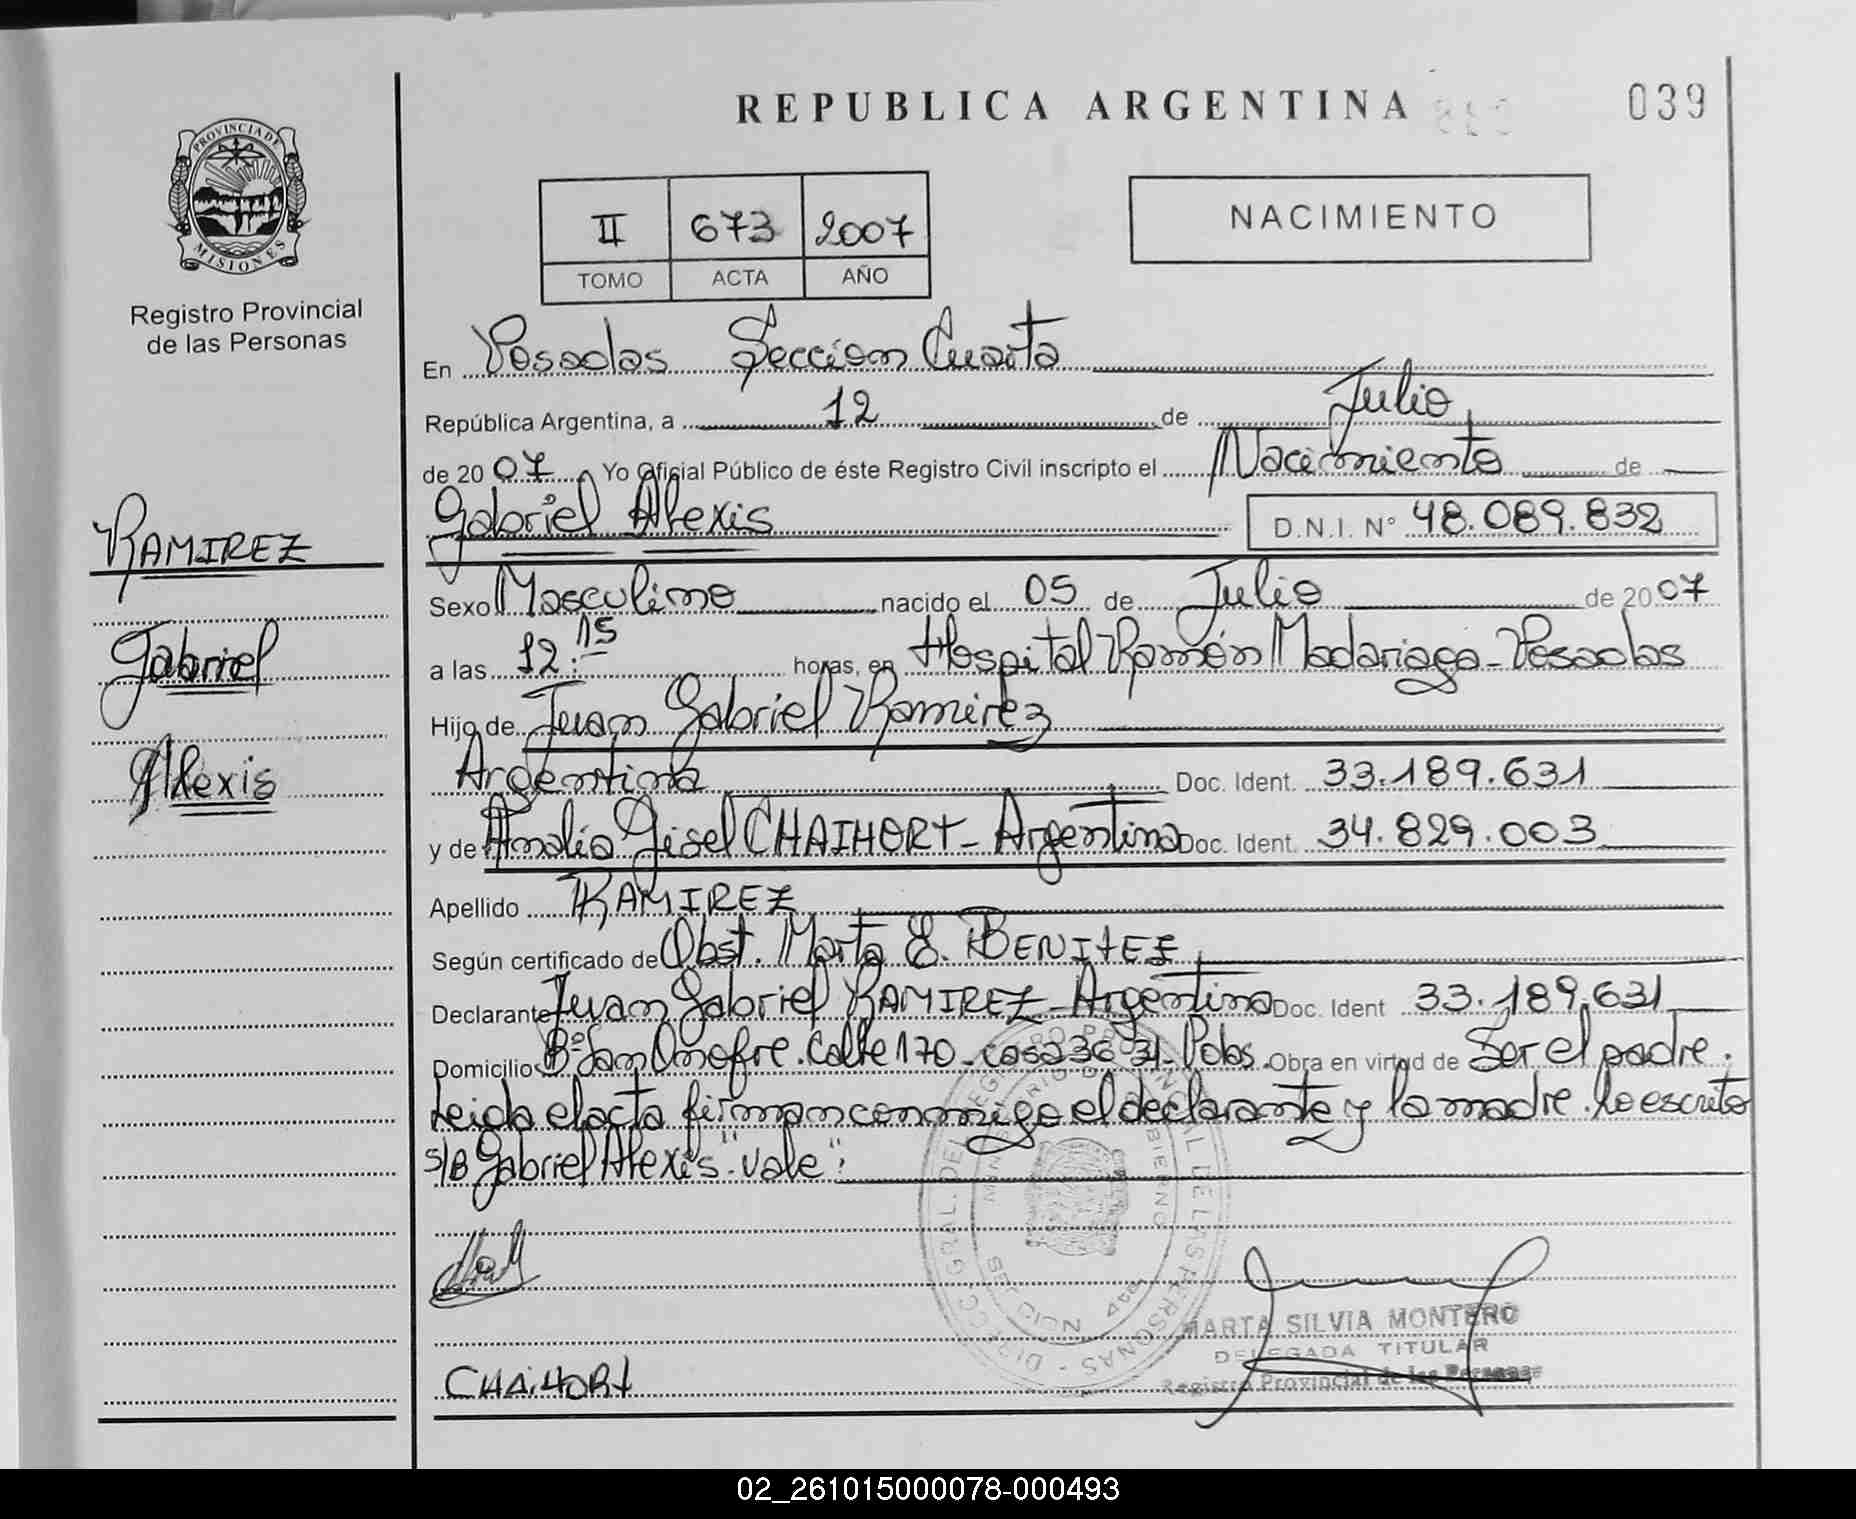 PROVINCIA DE
MISIONES
Registro Provincial
de las Personas
RAMIREZ
Gabriel
Alexis
REPUBLICA ARGENTINA
039
II 673 2007
TOMO ACTA AÑO
NACIMIENTO
En Posadas Sección Cuarta
República Argentina, a 12 de Julio
de 20 07 Yo Oficial Público de éste Registro Civil inscripto el Nacimiento de
Gabriel Alexis D.N.I. N° 48.089.832
Sexo Masculino nacido el 05 de Julio de 20 07
a las 12:15 horas, en Hospital Ramón Madariaga - Posadas
Hijo de Juan Gabriel Ramirez
Argentina Doc. Ident. 33.189.631
y de Analia Gisel CHAIHORT - Argentina Doc. Ident. 34.829.003
Apellido RAMIREZ
Según certificado de Obst. Marta E. BENITEZ
Declarante Juan Gabriel RAMIREZ - Argentina Doc. Ident 33.189.631
Domicilio B° San Onofre. Calle 170 - casa 36 31 - Pdas. Obra en virtud de Ser el padre.
Leida el acta firman conmigo el declarante y la madre. Lo escrito
S/B Gabriel Alexis" Vale":
CHAIHORT
MARTA SILVIA MONTERO
DELEGADA TITULAR
Registro Provincial de las Personas
02_261015000078-000493